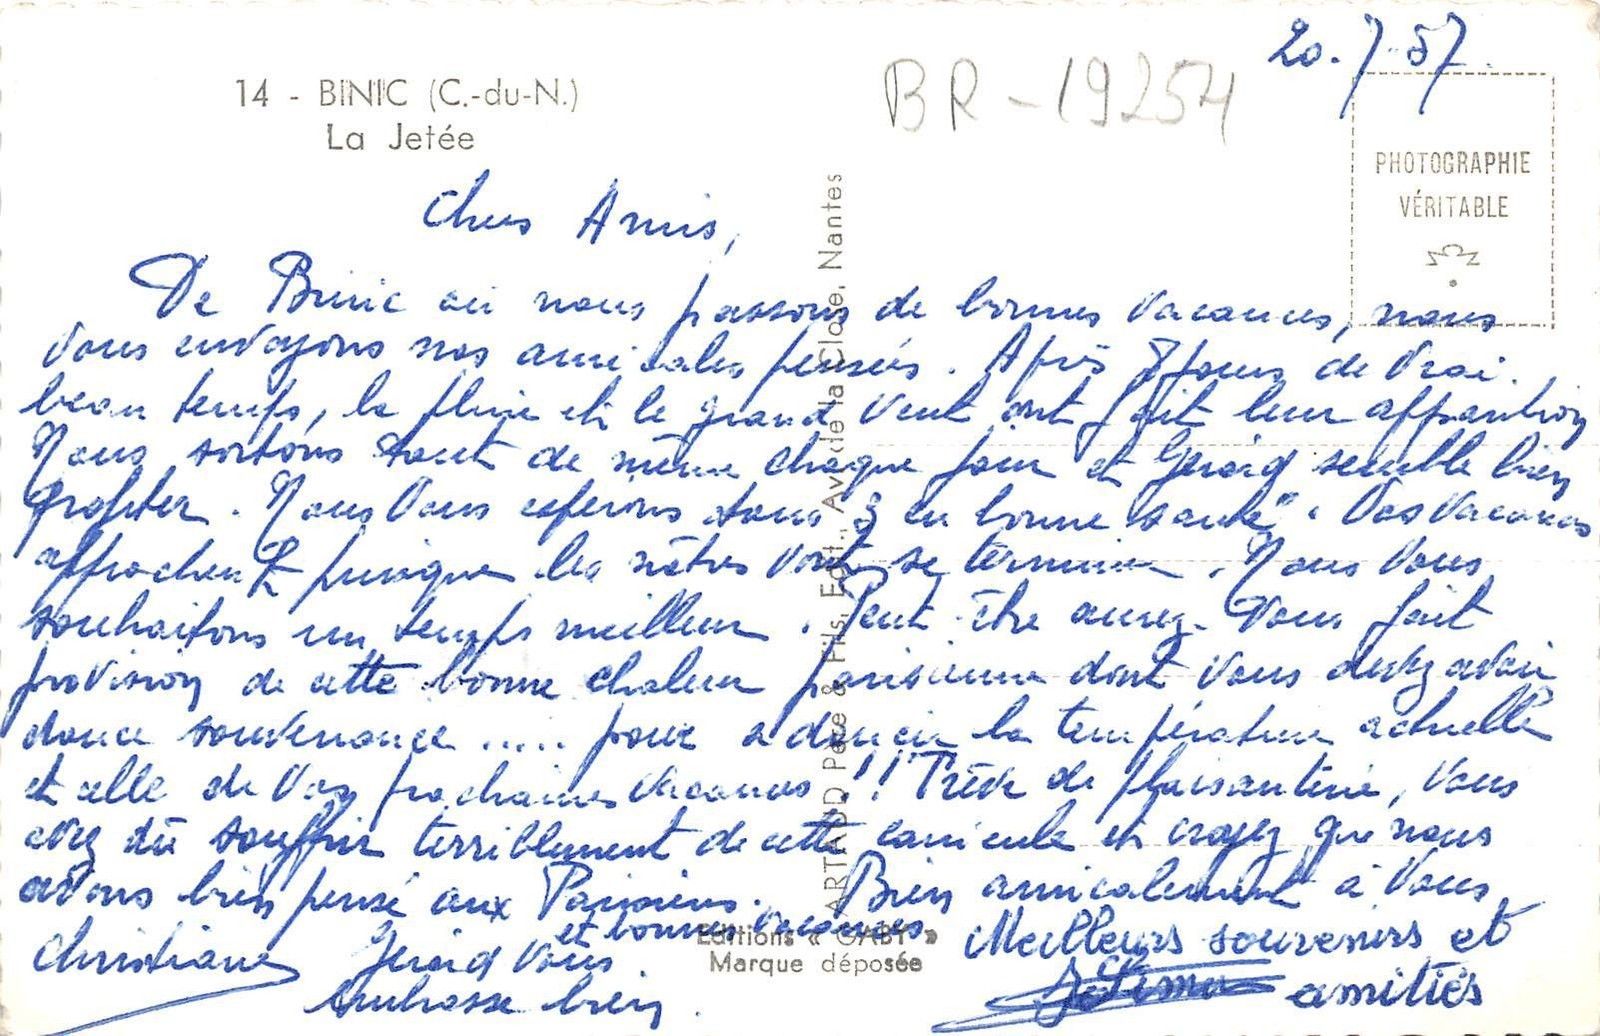 20.7.57
14 - BINIC (C.-du-N.)
La Jetée
BR-19254
PHOTOGRAPHIE
VÉRITABLE
ARTAUD Père & Fils, Edit., Av. de la Close, Nantes
Chers Amis,
De Binic où nous passons de bonnes vacances, nous
vous envoyons nos amicales pensées. Après 8 jours de vrai
beau temps, la pluie et le grand vent ont fait leur apparition
Nous sortons tout de même chaque jour et Gérard semble bien
profiter. Nous vous espérons tous 3 en bonne santé. Vos vacances
approchent puisque les nôtres vont se terminer. Nous vous
souhaitons un temps meilleur. Peut-être aurez-vous fait
provision de cette bonne chaleur parisienne dont vous devez avoir
douce souvenance ..... pour adoucir la température actuelle
et celle de vos prochaines vacances !! Trève de plaisanterie, vous
avez dû souffrir terriblement de cette canicule et croyez que nous
avons bien pensé aux Parisiens. Bien amicalement à vous
et bonnes vacances
Christiane
Gérard vous
embrasse bien.
Meilleurs souvenirs et
amitiés
Editions « GABY »
Marque déposée